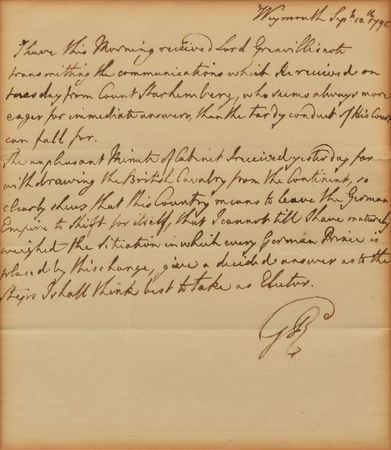 Weymouth Sept. 12th 1795
I have this Morning received Lord Grenville's note
transmitting the communications which He received on
tuesday from Count Starhemberg, who seems always more
eager for immediate answers, than the tardy conduct of His Court
can call for.
The unpleasant Minute of Cabinet I received yesterday for
withdrawing the British Cavalry from the Continent, so
clearly shews that this Country means to leave the German
Empire to shift for itself, that I cannot till I have maturely
weighed the situation in which every German Prince is
placed by this change, give a decided answer as to the
steps I shall think best to take as Elector.
GR